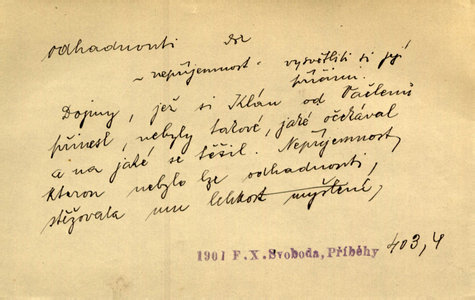 odhadnouti
~ nepříjemnost - vysvětliti si její
příčinu.
Dojmy, jež si Klán od Vačlenů
přinesl, nebyly takové, jaké očekával
a na jaké se těšil. Nepříjemnost,
kterou nebylo lze odhadnouti,
stěžovala mu lehkost myšlení,
1901 F.X.Svoboda, Příběhy 403,4